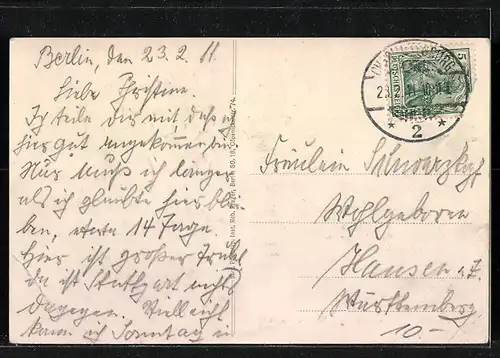 Berlin, den 23. 2. 11
Liebe Christine.
Ich teile dir mit daß ich
hier gut angekommen bin.
Nur muß ich länger
als ich glaubte hier blei-
ben, etwa 14 Tage.
Hier ist großer Trubel
da ist Stuttgart nichts
dagegen. Vielleicht
kann ich Sonntag in
Fräulein Schwarzkopf
Wohlgeboren
Hausen a. Z.
Württemberg
10-
2
5